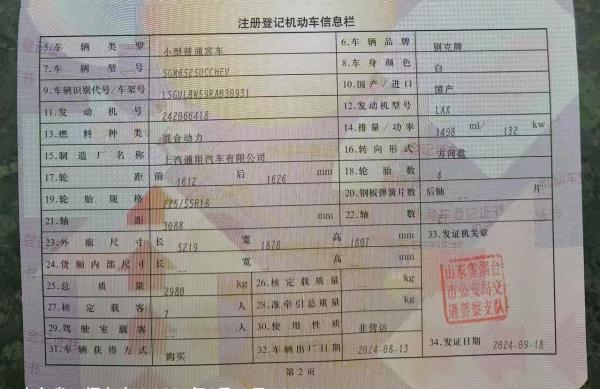 注册登记机动车信息栏
5.车辆类型 小型普通客车 6.车辆品牌 别克牌
7.车辆型号 SGM6525UCCHEV 8.车身颜色 白
9.车辆识别代号/车架号 LSGUL8N59RA030931 10.国产/进口 国产
11.发动机号 242066418 12.发动机型号 LAX
13.燃料种类 混合动力 14.排量/功率 1498 ml/ 132 kw
15.制造厂名称 上汽通用汽车有限公司 16.转向形式 方向盘
17.轮距 前 1612 后 1626 mm 18.轮胎数 4
19.轮胎规格 225/55R18 20.钢板弹簧片数 后轴 -- 片
21.轴距 3088 mm 22.轴数
23.外廓尺寸 长 5219 宽 1878 高 1807 mm 33.发证机关章
24.货厢内部尺寸 长 -- 宽 -- 高 -- mm
25.总质量 2980 kg 26.核定载质量 -- kg
27.核定载客 7 人 28.准牵引总质量 -- kg
29.驾驶室载客 -- 人 30.使用性质 非营运
31.车辆获得方式 购买 32.车辆出厂日期 2024-08-13 34.发证日期 2024-09-18
山东省烟台
市公安局交
通警察支队
第 2 页